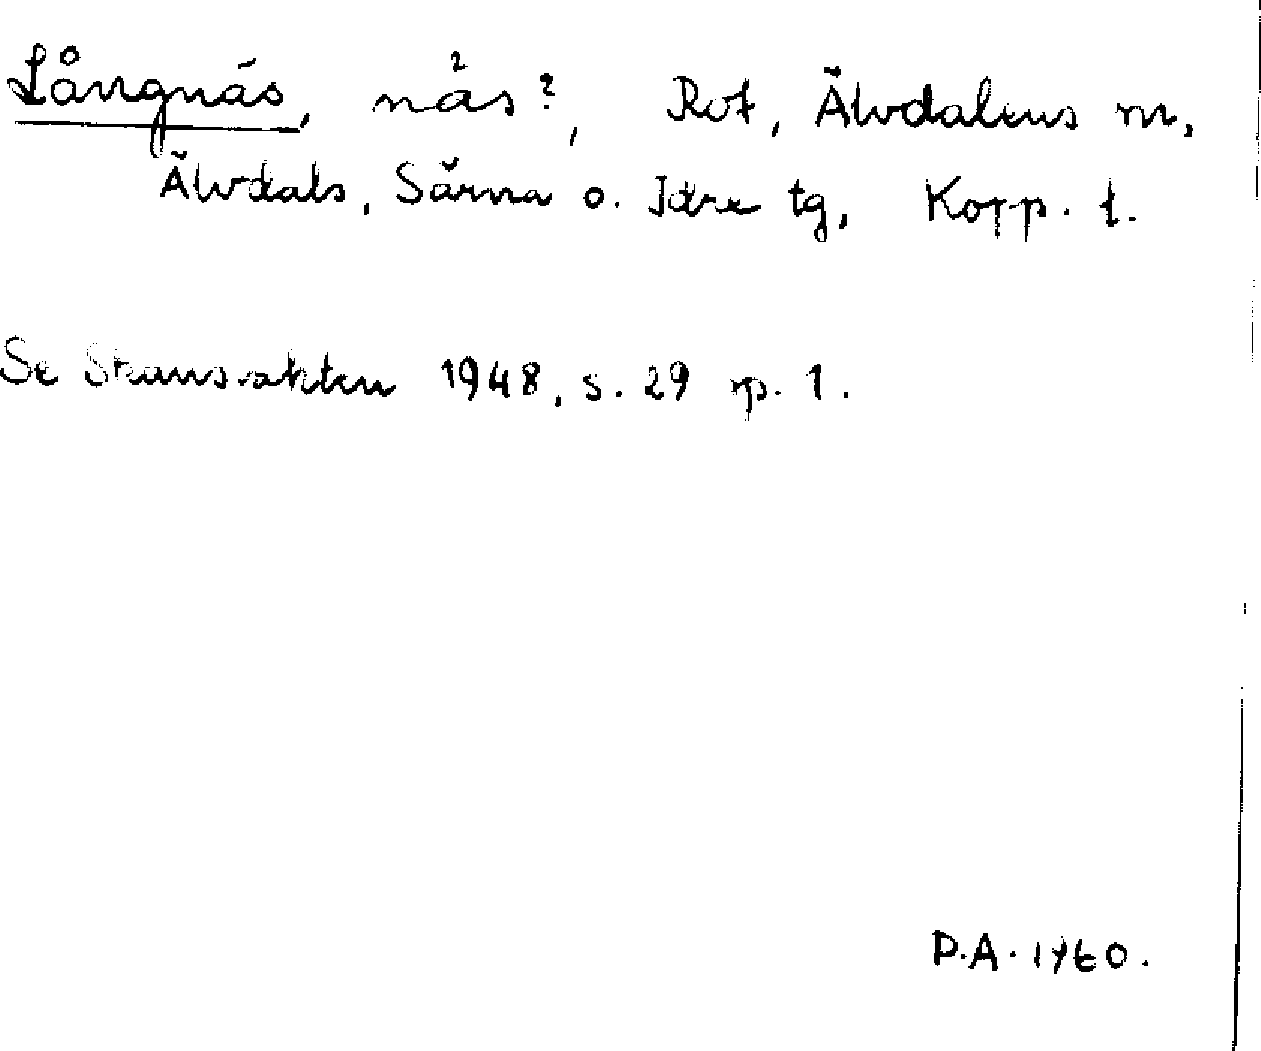 Långnäs, näs?, Rot, Älvdalens m,
Älvdals, Särna o. Idre tg, Kopp. l.
Se Skansvakten 1948, s. 29 sp. 1.
D.A. 1960.